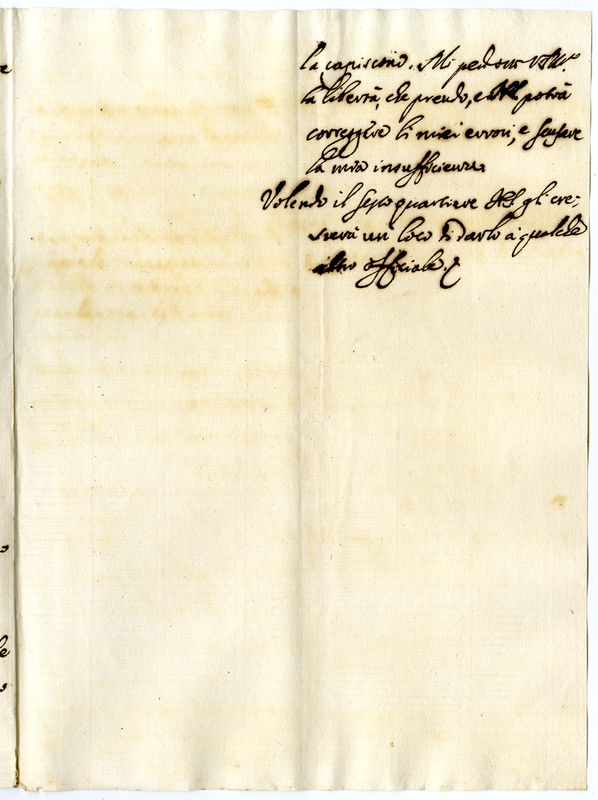 la capiscono. Mi perdoni
la libertà, che prendo, e potrà
correggere li miei errori, e scusare
la mia insufficienza.
Volendo il sesto quartiere gli cre-
scerà un loco di darlo à qualche
altro officiale.